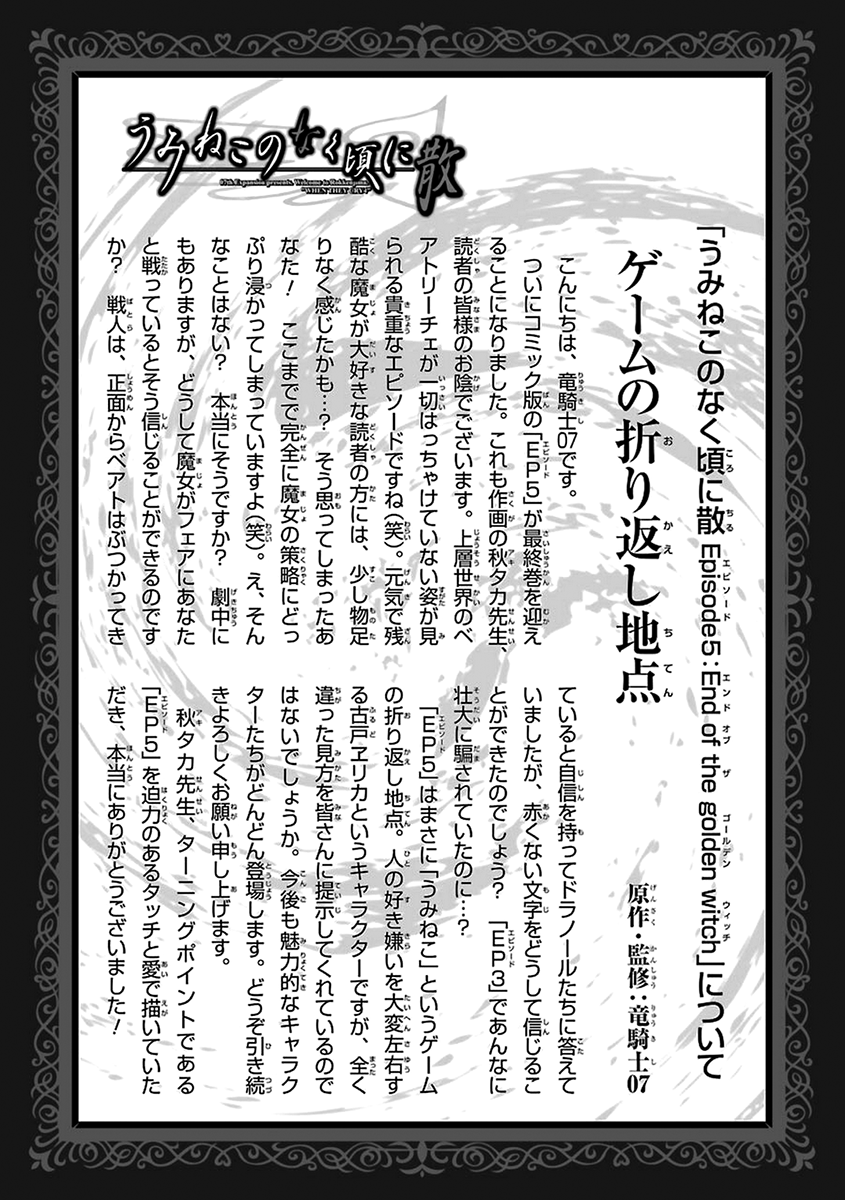 うみねこのなく頃に散
07th Expansion presents. Welcome to Rokkenjima.
"WHEN THEY CRY 4"
「うみねこのなく頃に散 Episode5:End of the golden witch」について
ゲームの折り返し地点
原作・監修:竜騎士07
こんにちは、竜騎士07です。
ついにコミック版の「EP5」が最終巻を迎え
ることになりました。これも作画の秋タカ先生、
読者の皆様のお陰でございます。上層世界のベ
アトリーチェが一切はっちゃけていない姿が見
られる貴重なエピソードですね(笑)。元気で残
酷な魔女が大好きな読者の方には、少し物足
りなく感じたかも…? そう思ってしまったあ
なた! ここまでで完全に魔女の策略にどっ
ぷり浸かってしまっていますよ(笑)。え、そん
なことはない? 本当にそうですか? 劇中に
もありますが、どうして魔女がフェアにあなた
と戦っているとそう信じることができるのです
か? 戦人は、正面からベアトはぶつかってき
ていると自信を持ってドラノールたちに答えて
いましたが、赤くない文字をどうして信じるこ
とができたのでしょう? 「EP3」であんなに
壮大に騙されていたのに…?
「EP5」はまさに「うみねこ」というゲーム
の折り返し地点。人の好き嫌いを大変左右す
る古戸ヱリカというキャラクターですが、全く
違った見方を皆さんに提示してくれているので
はないでしょうか。今後も魅力的なキャラク
ターたちがどんどん登場します。どうぞ引き続
きよろしくお願い申し上げます。
秋タカ先生、ターニングポイントである
「EP5」を迫力のあるタッチと愛で描いていた
だき、本当にありがとうございました!